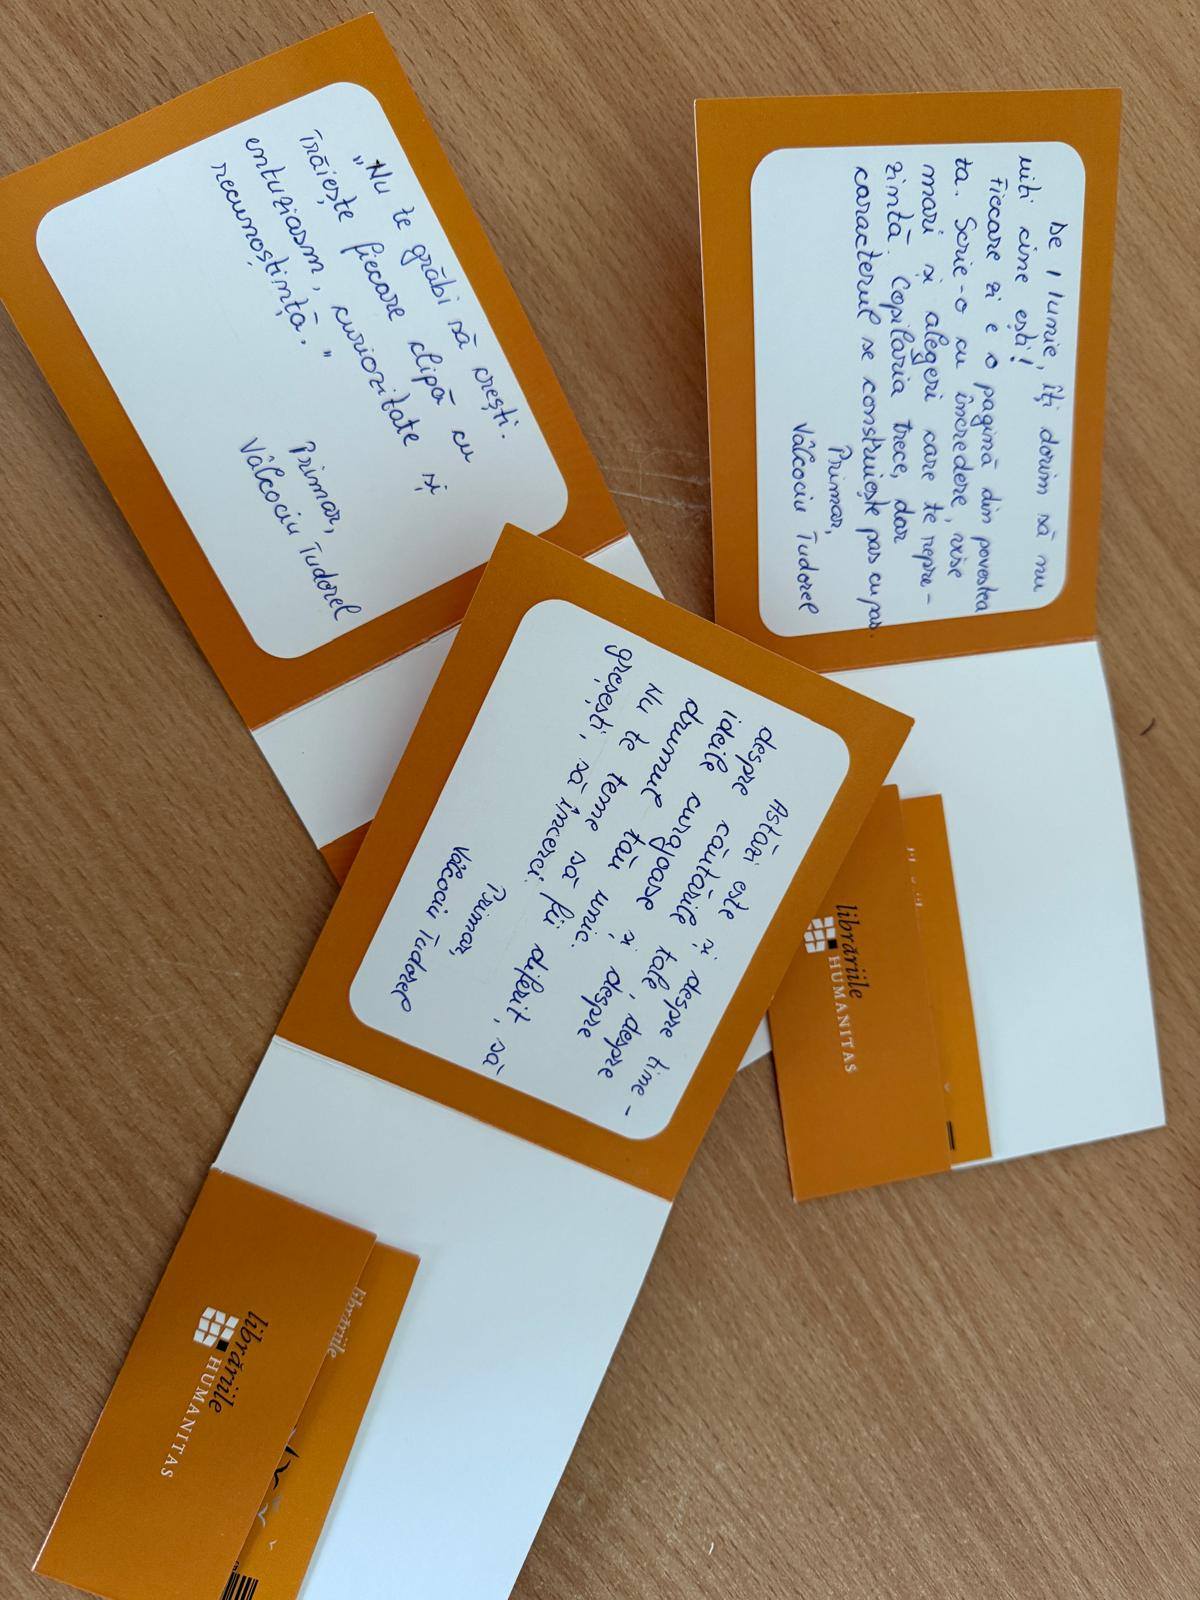 „Nu te grăbi să crești.
Trăiește fiecare clipă cu
entuziasm, curiozitate și
recunoștință.”
Primar,
Vâlcociu Tudorel
De 1 Iunie, îți dorim să nu
uiti cine ești!
Fiecare zi e o pagină din povestea
ta. Scrie-o cu încredere, vise
mari și alegeri care te repre-
zintă. Copilaria trece, dar
caracterul se construiește pas cu pas.
Primar,
Vâlcociu Tudorel
Astăzi este și despre tine -
despre căutările tale, despre
ideile curajoase și despre
drumul tău unic.
Nu te teme să fii diferit, să
greșești, să încerci.
Primar,
Vâlcociu Tudorel
librăriile
HUMANITAS
librăriile
HUMANITAS
librăriile